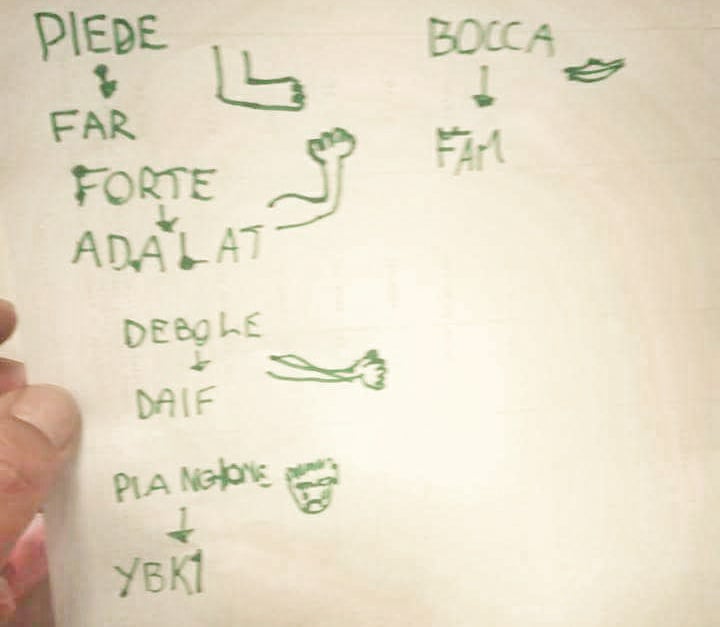 PIEDE
FAR
FORTE
ADALAT
DEBOLE
DAIF
PIANGIONE
YBKI
BOCCA
FAM